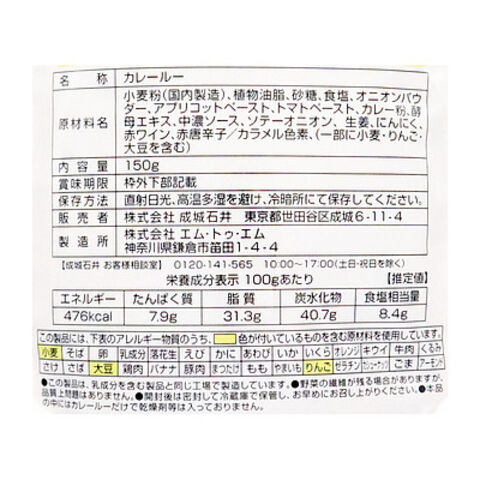 名　称 カレールー
原材料名 小麦粉（国内製造）、植物油脂、砂糖、食塩、オニオンパウ
ダー、アプリコットペースト、トマトペースト、カレー粉、酵
母エキス、中濃ソース、ソテーオニオン、生姜、にんにく、
赤ワイン、赤唐辛子／カラメル色素、（一部に小麦・りんご・
大豆を含む）
内容量 150g
賞味期限 枠外下部記載
保存方法 直射日光、高温多湿を避け、冷暗所にて保存してください。
販売者 株式会社 成城石井　東京都世田谷区成城6-11-4
製造所 株式会社 エム・トゥ・エム
神奈川県鎌倉市笛田1-4-4
［成城石井 お客様相談室］ 0120-141-565　10:00〜17:00（土日・祝日を除く）
栄養成分表示 100gあたり　【推定値】
エネルギー たんぱく質 脂質 炭水化物 食塩相当量
476kcal 7.9g 31.3g 40.7g 8.4g
この製品には、下表のアレルギー物質のうち、色が付いているものを含む原材料を使用しています。
小麦 そば 卵 乳成分 落花生 えび かに あわび いか いくら オレンジ キウイ 牛肉 くるみ
さけ さば 大豆 鶏肉 バナナ 豚肉 まつたけ もも やまいも りんご ゼラチン カシューナッツ ごま アーモンド
●この製品は、乳成分を含む製品と同じ工場で製造しています。●野菜の繊維が残る場合がありますが、
品質上問題はありません。●開封後は密封して冷蔵庫で保管し、お早めにお召し上がりください。●本品
の中にはカレールーだけで乾燥剤等は入っておりません。